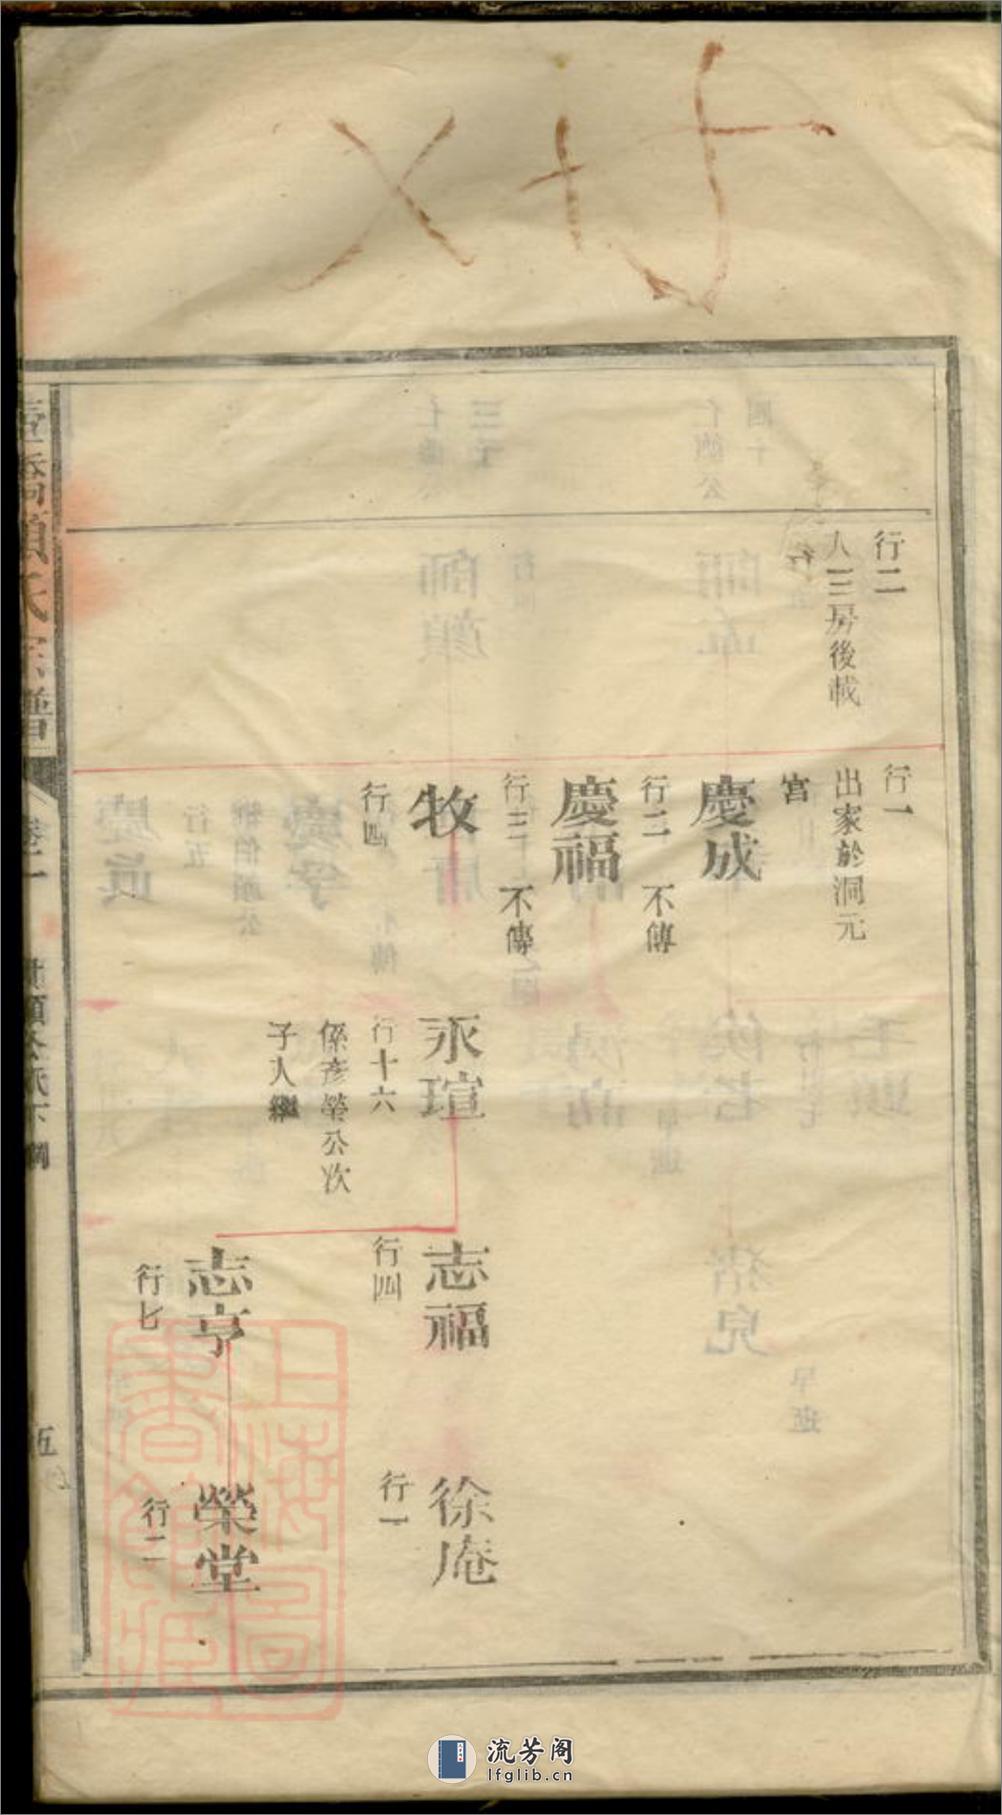 行二
人三房後載
行一
出家於洞元
宮
慶成
行二 不傳
慶福
行三 不傳
牧
行四
永瑄
行十六
係彥榮公次
子入繼
志福
行四
志亨
行七
徐庵
行一
榮堂
行二
氏宗譜
卷二
伍
上海圖
書館藏
流芳阁
lfglib.cn